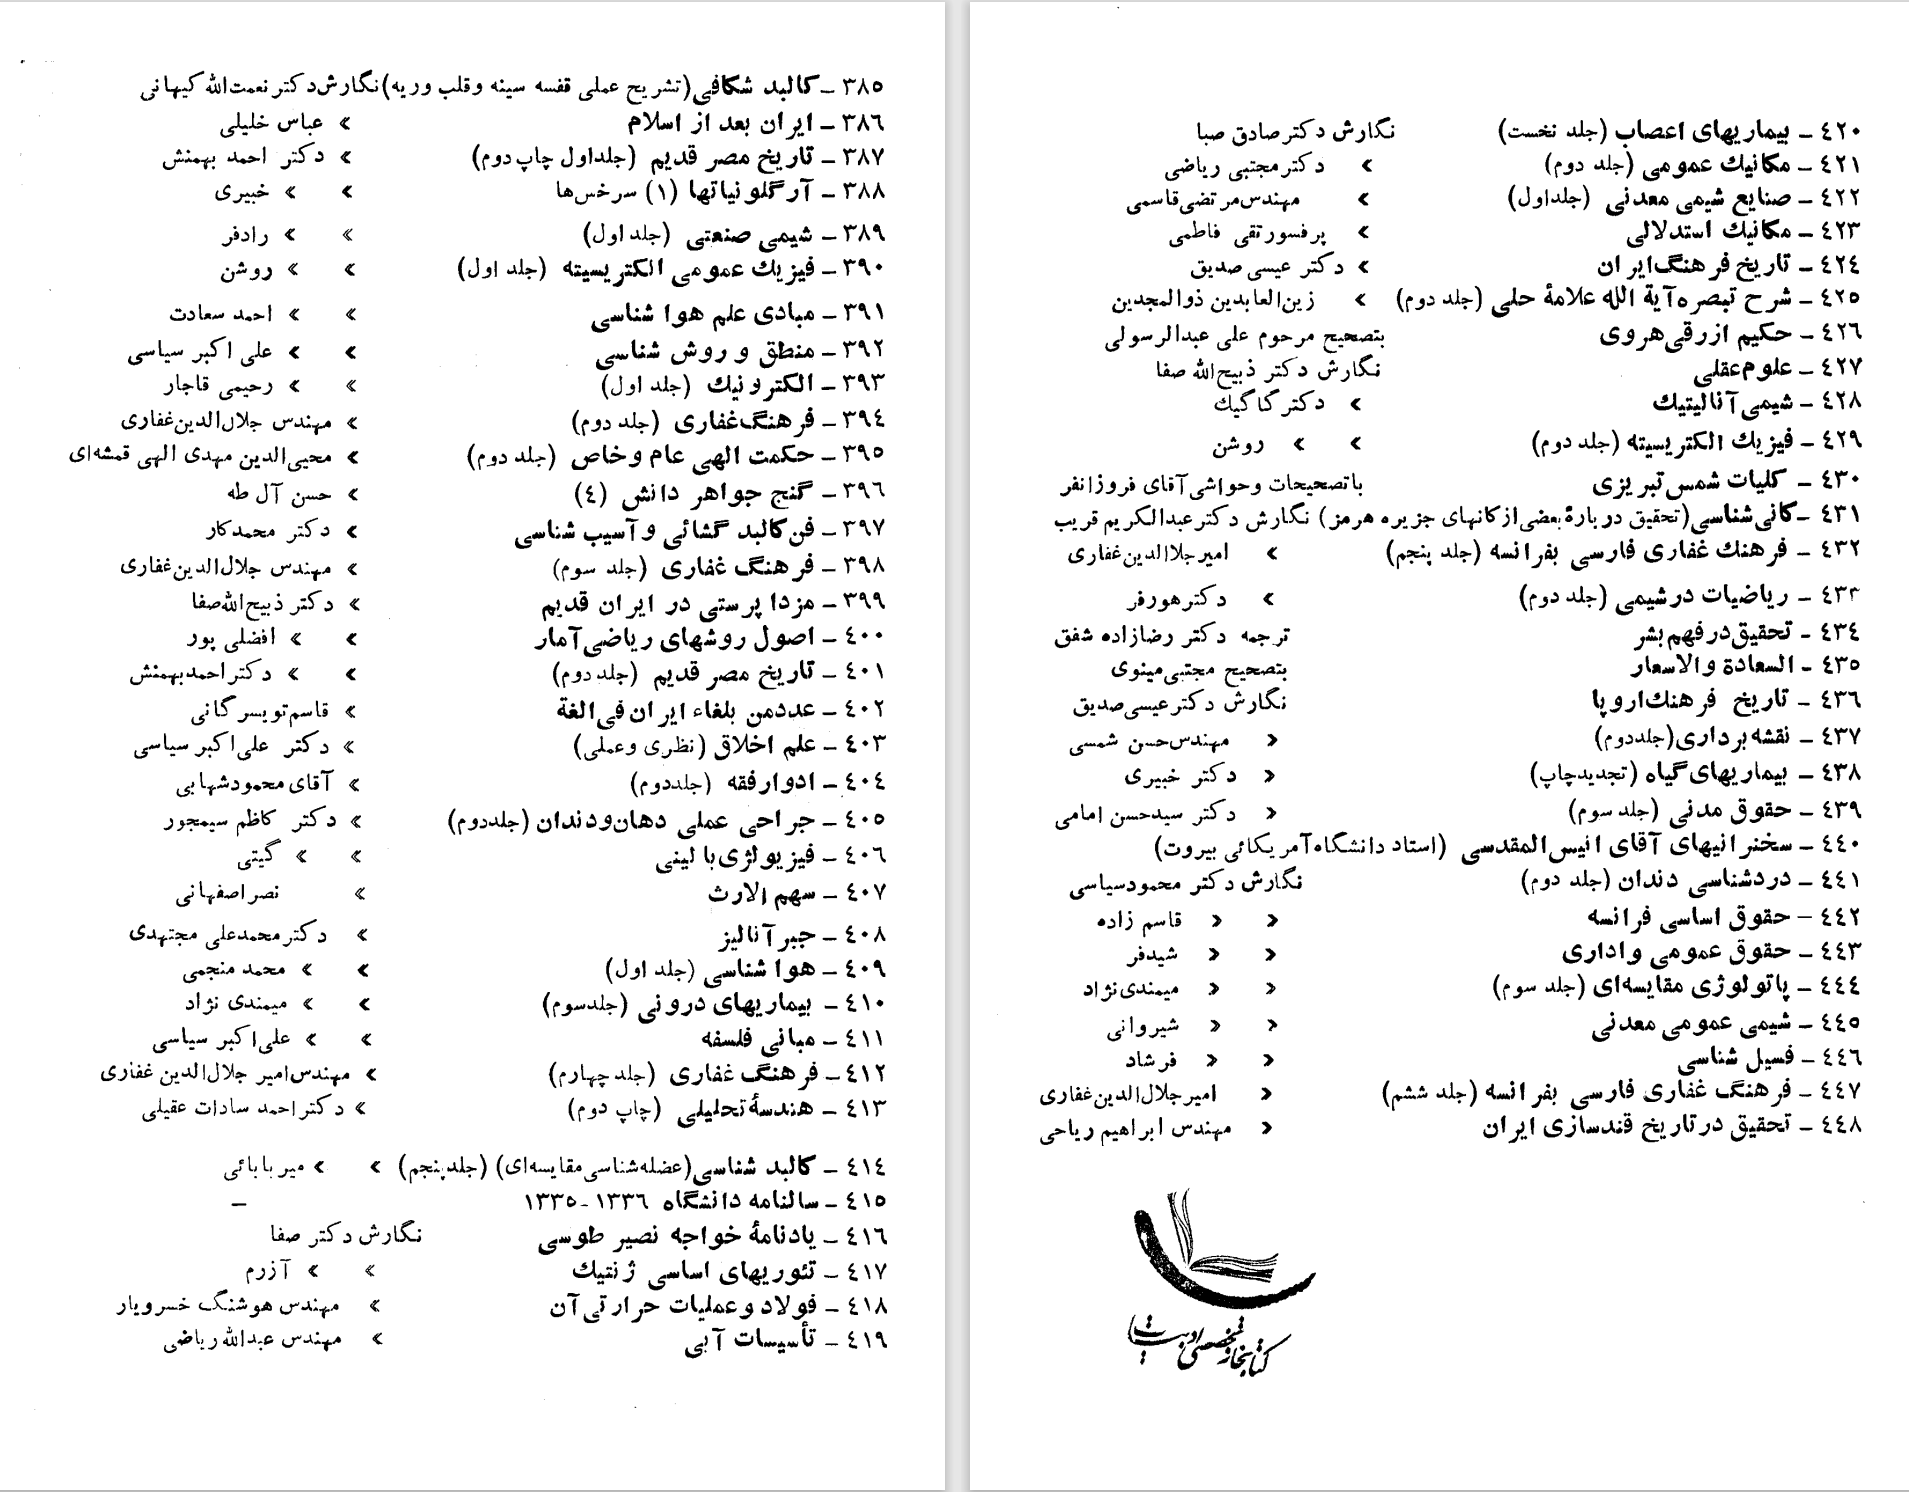 ۳۸۵ ـ کالبد شکافی (تشریح عملی قفسه سینه وقلب وریه) نگارش دکتر نعمت‌الله کیهانی
۳۸٦ ـ ایران بعد از اسلام » عباس خلیلی
۳۸۷ ـ تاریخ مصر قدیم (جلداول چاپ دوم) » دکتر احمد بهمنش
۳۸۸ ـ آرگلونیاتها (۱) سرخس‌ها » » خبیری
۳۸۹ ـ شیمی صنعتی (جلد اول) » » رادفر
۳۹۰ ـ فیزیك عمومی الکتریسیته (جلد اول) » » روشن
۳۹۱ ـ مبادی علم هوا شناسی » » احمد سعادت
۳۹۲ ـ منطق و روش شناسی » » علی اکبر سیاسی
۳۹۳ ـ الکترونیك (جلد اول) » » رحیمی قاجار
۳۹٤ ـ فرهنگ‌غفاری (جلد دوم) » مهندس جلال‌الدین‌غفاری
۳۹۵ ـ حکمت الهی عام وخاص (جلد دوم) » محیی‌الدین مهدی الهی قمشه‌ای
۳۹٦ ـ گنج جواهر دانش (٤) » حسن آل طه
۳۹۷ ـ فن‌کالبد گشائی وآسیب شناسی » دکتر محمدکار
۳۹۸ ـ فرهنگ غفاری (جلد سوم) » مهندس جلال‌الدین‌غفاری
۳۹۹ ـ مزدا پرستی در ایران قدیم » دکتر ذبیح‌الله‌صفا
٤۰۰ ـ اصول روشهای ریاضی‌آمار » » افضلی پور
٤۰۱ ـ تاریخ مصر قدیم (جلد دوم) » » دکتر احمدبهمنش
٤۰۲ ـ عددمن بلغاء ایران فی‌الغة » قاسم‌تویسرگانی
٤۰۳ ـ علم اخلاق (نظری وعملی) » دکتر علی‌اکبر سیاسی
٤۰٤ ـ ادوارفقه (جلددوم) » آقای محمودشهابی
٤۰۵ ـ جراحی عملی دهان‌ودندان (جلددوم) » دکتر کاظم سیمجور
٤۰٦ ـ فیزیولژی‌بالینی » » گیتی
٤۰۷ ـ سهم الارث » نصراصفهانی
٤۰۸ ـ جبرآنالیز » دکترمحمدعلی مجتهدی
٤۰۹ ـ هوا شناسی (جلد اول) » » محمد منجمی
٤۱۰ ـ بیماریهای درونی (جلدسوم) » » میمندی نژاد
٤۱۱ ـ مبانی فلسفه » » علی‌اکبر سیاسی
٤۱۲ ـ فرهنگ غفاری (جلد چهارم) » مهندس‌امیر جلال‌الدین غفاری
٤۱۳ ـ هندسهٔ تحلیلی (چاپ دوم) » دکتراحمد سادات عقیلی
٤۱٤ ـ کالبد شناسی (عضله‌شناسی مقایسه‌ای) (جلدپنجم) » » میربابائی
٤۱۵ ـ سالنامه دانشگاه ۱۳۳٦ ـ ۱۳۳۵ ـ
٤۱٦ ـ یادنامهٔ خواجه نصیر طوسی نگارش دکتر صفا
٤۱۷ ـ تئوریهای اساسی ژنتیك » » آزرم
٤۱۸ ـ فولاد وعملیات حرارتی‌آن » مهندس هوشنگ خسرویار
٤۱۹ ـ تأسیسات آبی » مهندس عبدالله ریاضی
٤۲۰ ـ بیماریهای اعصاب (جلد نخست) نگارش دکترصادق صبا
٤۲۱ ـ مکانیك عمومی (جلد دوم) » دکترمجتبی ریاضی
٤۲۲ ـ صنایع شیمی معدنی (جلداول) » مهندس‌مرتضی‌قاسمی
٤۲۳ ـ مکانیك استدلالی » پرفسورتقی فاطمی
٤۲٤ ـ تاریخ فرهنگ‌ایران » دکتر عیسی‌صدیق
٤۲۵ ـ شرح تبصره‌آیة الله علامهٔ حلی (جلد دوم) » زین‌العابدین ذوالمجدین
٤۲٦ ـ حکیم ازرقی‌هروی بتصحیح مرحوم علی عبدالرسولی
٤۲۷ ـ علوم‌عقلی نگارش دکتر ذبیح‌الله صفا
٤۲۸ ـ شیمی‌آنالیتیك » دکترگاگیك
٤۲۹ ـ فیزیك الکتریسیته (جلد دوم) » » روشن
٤۳۰ ـ کلیات شمس‌تبریزی باتصحیحات وحواشی‌آقای فروزانفر
٤۳۱ ـ کانی‌شناسی (تحقیق دربارهٔ بعضی‌ازکانهای جزیره هرمز) نگارش دکترعبدالکریم قریب
٤۳۲ ـ فرهنك غفاری فارسی بفرانسه (جلد پنجم) » امیرجلاالدین‌غفاری
٤۳۳ ـ ریاضیات درشیمی (جلد دوم) » دکترهورفر
٤۳٤ ـ تحقیق‌درفهم‌بشر ترجمه دکتر رضازاده شفق
٤۳۵ ـ السعادة والاسعار بتصحیح مجتبی‌مینوی
٤۳٦ ـ تاریخ فرهنك‌اروپا نگارش دکترعیسی‌صدیق
٤۳۷ ـ نقشه برداری (جلددوم) » مهندس‌حسن شمسی
٤۳۸ ـ بیماریهای‌گیاه (تجدیدچاپ) » دکتر خبیری
٤۳۹ ـ حقوق مدنی (جلد سوم) » دکتر سیدحسن امامی
٤٤۰ ـ سخنرانیهای آقای انیس‌المقدسی (استاد دانشگاه‌آمریکائی بیروت)
٤٤۱ ـ دردشناسی دندان (جلد دوم) نگارش دکتر محمودسیاسی
٤٤۲ ـ حقوق اساسی فرانسه » » قاسم زاده
٤٤۳ ـ حقوق عمومی واداری » » شیدفر
٤٤٤ ـ پاتولوژی مقایسه‌ای (جلد سوم) » » میمندی‌نژاد
٤٤۵ ـ شیمی عمومی معدنی » » شیروانی
٤٤٦ ـ فسیل شناسی » » فرشاد
٤٤۷ ـ فرهنگ غفاری فارسی بفرانسه (جلد ششم) » امیرجلال‌الدین‌غفاری
٤٤۸ ـ تحقیق درتاریخ قندسازی ایران » مهندس ابراهیم ریاحی
کتابخانه تخصصی ادبیات